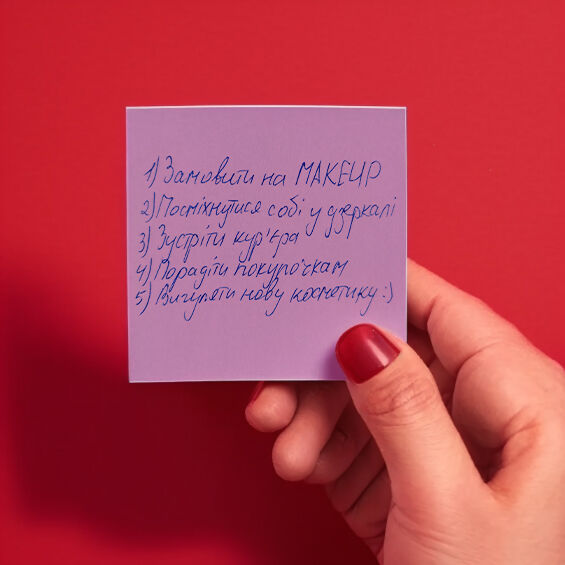 1) Замовити на MAKEUP
2) Посміхнутися собі у дзеркалі
3) Зустріти кур'єра
4) Порадіти покупочкам
5) Вигуляти нову косметику :)